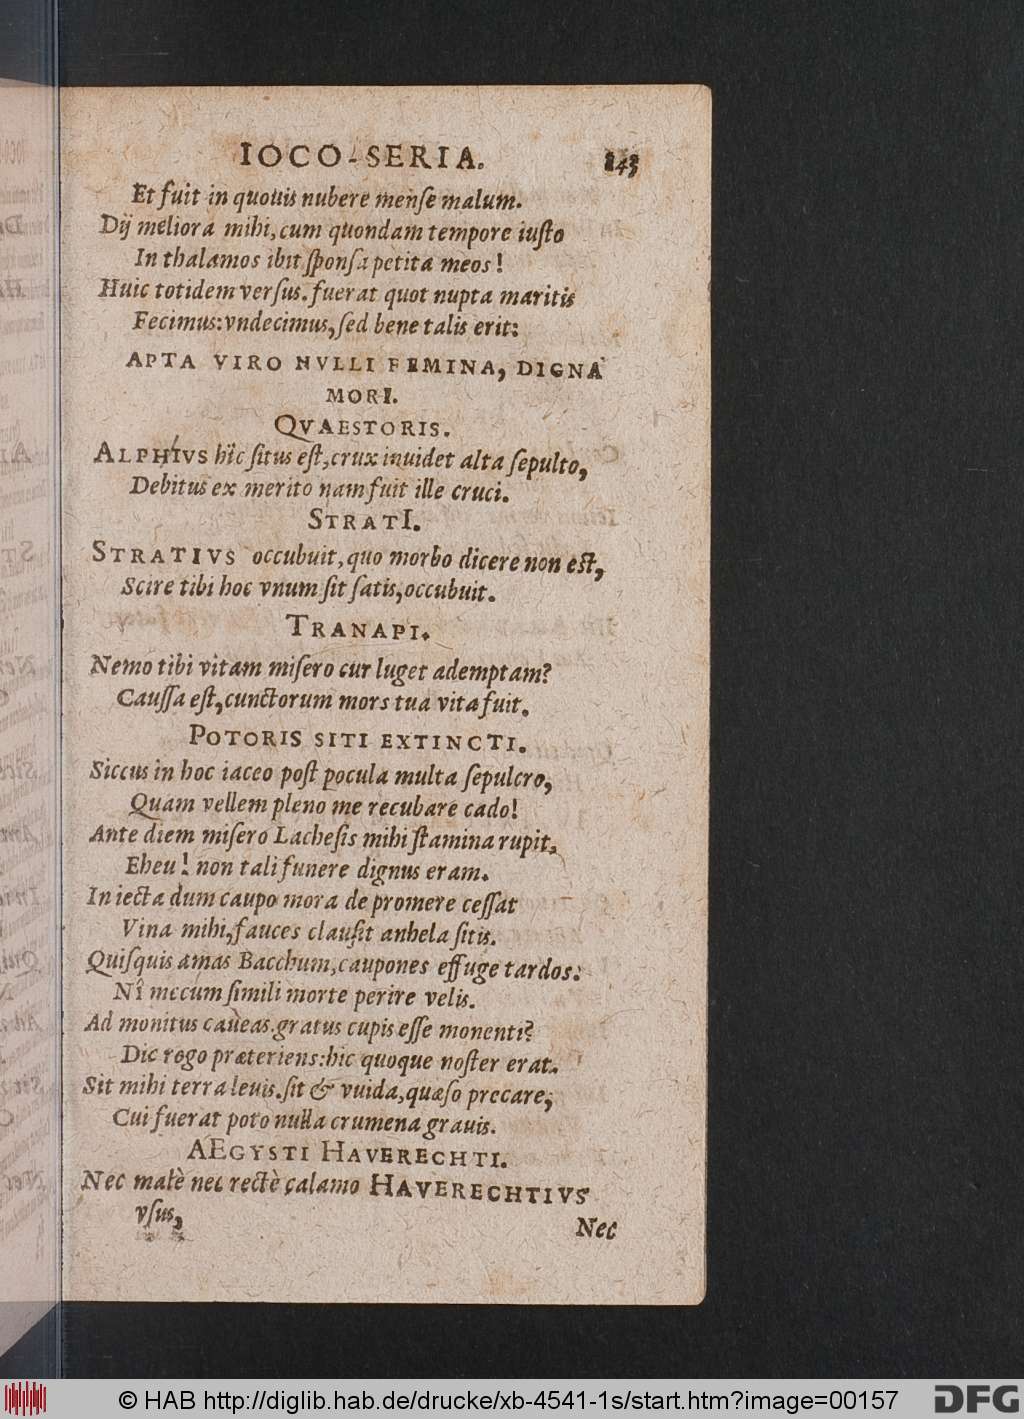 IOCO-SERIA. 143
Et fuit in quouis nubere menſe malum.
Dij meliora mihi, cum quondam tempore iuſto
In thalamos ibit ſponſa petita meos!
Huic totidem verſus. fuerat quot nupta maritis
Fecimus: vndecimus, ſed bene talis erit:
APTA VIRO NVLLI FEMINA, DIGNA
MORI.
QVAESTORIS.
ALPHIVS hîc ſitus eſt, crux inuidet alta ſepulto,
Debitus ex merito nam fuit ille cruci.
STRATI.
STRATIVS occubuit, quo morbo dicere non eſt,
Scire tibi hoc vnum ſit ſatis, occubuit.
TRANAPI.
Nemo tibi vitam miſero cur luget ademptam?
Cauſſa eſt, cunctorum mors tua vita fuit.
POTORIS SITI EXTINCTI.
Siccus in hoc iaceo poſt pocula multa ſepulcro,
Quam vellem pleno me recubare cado!
Ante diem miſero Lacheſis mihi ſtamina rupit,
Eheu! non tali funere dignus eram.
Iniecta dum caupo mora de promere ceſſat
Vina mihi, fauces clauſit anhela ſitis.
Quiſquis amas Bacchum, caupones effuge tardos:
Nî mecum ſimili morte perire velis.
Ad monitus caueas. gratus cupis eſſe monenti?
Dic rogo præteriens: hic quoque noſter erat.
Sit mihi terra leuis. ſit & vuida, quæſo precare,
Cui fuerat poto nulla crumena grauis.
AEGYSTI HAVERECHTI.
Nec malè nec rectè calamo HAVERECHTIVS
vſus,
Nec
© HAB http://diglib.hab.de/drucke/xb-4541-1s/start.htm?image=00157
DFG